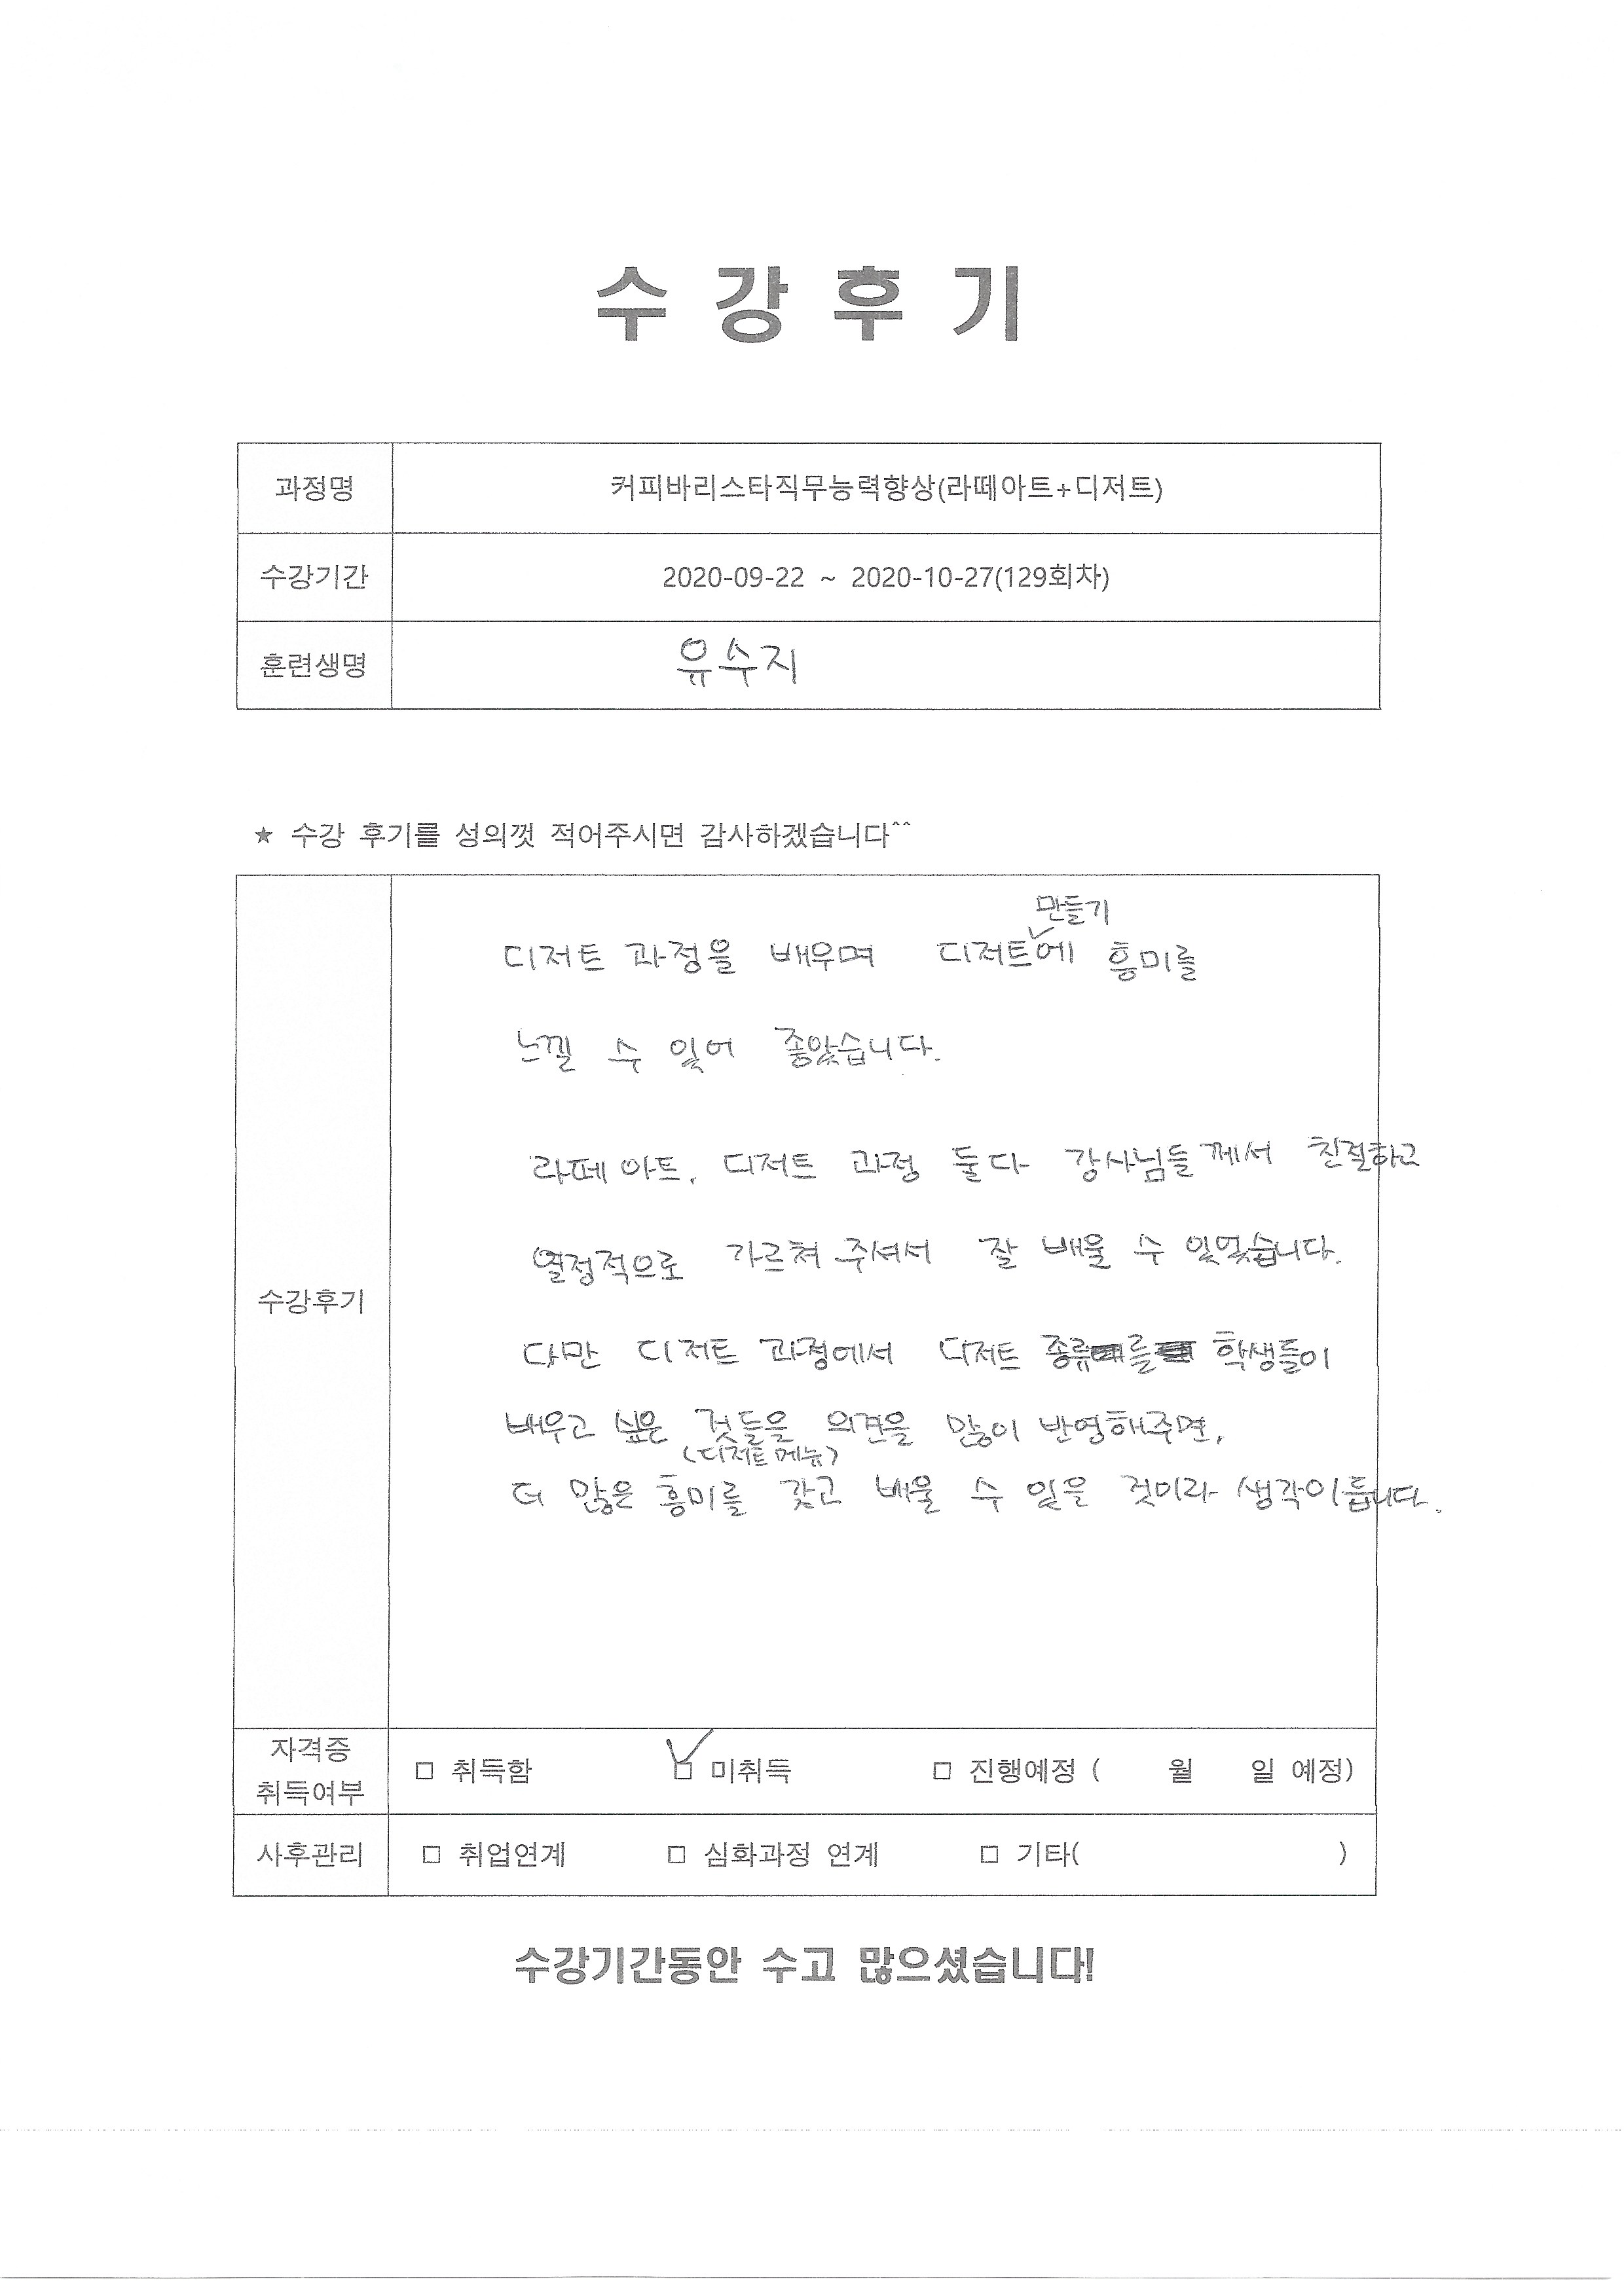 수 강 후 기
과정명 커피바리스타직무능력향상(라떼아트+디저트)
수강기간 2020-09-22 ~ 2020-10-27(129회차)
훈련생명 유수지
★ 수강 후기를 성의껏 적어주시면 감사하겠습니다^^
만들기
디저트 과정을 배우며 디저트✓에 흥미를
느낄 수 있어 좋았습니다.
라떼 아트, 디저트 과정 둘다 강사님들께서 친절하고
열정적으로 가르쳐 주셔서 잘 배울 수 있었습니다.
수강후기
다만 디저트 과정에서 디저트 종류를 학생들이
배우고 싶은 것들을 의견을 많이 반영해주면,
(디저트 메뉴)
더 많은 흥미를 갖고 배울 수 있을 것이라 생각이듭니다.
자격증
취득여부
□ 취득함 ☑ 미취득 □ 진행예정 ( 월 일 예정)
사후관리 □ 취업연계 □ 심화과정 연계 □ 기타( )
수강기간동안 수고 많으셨습니다!